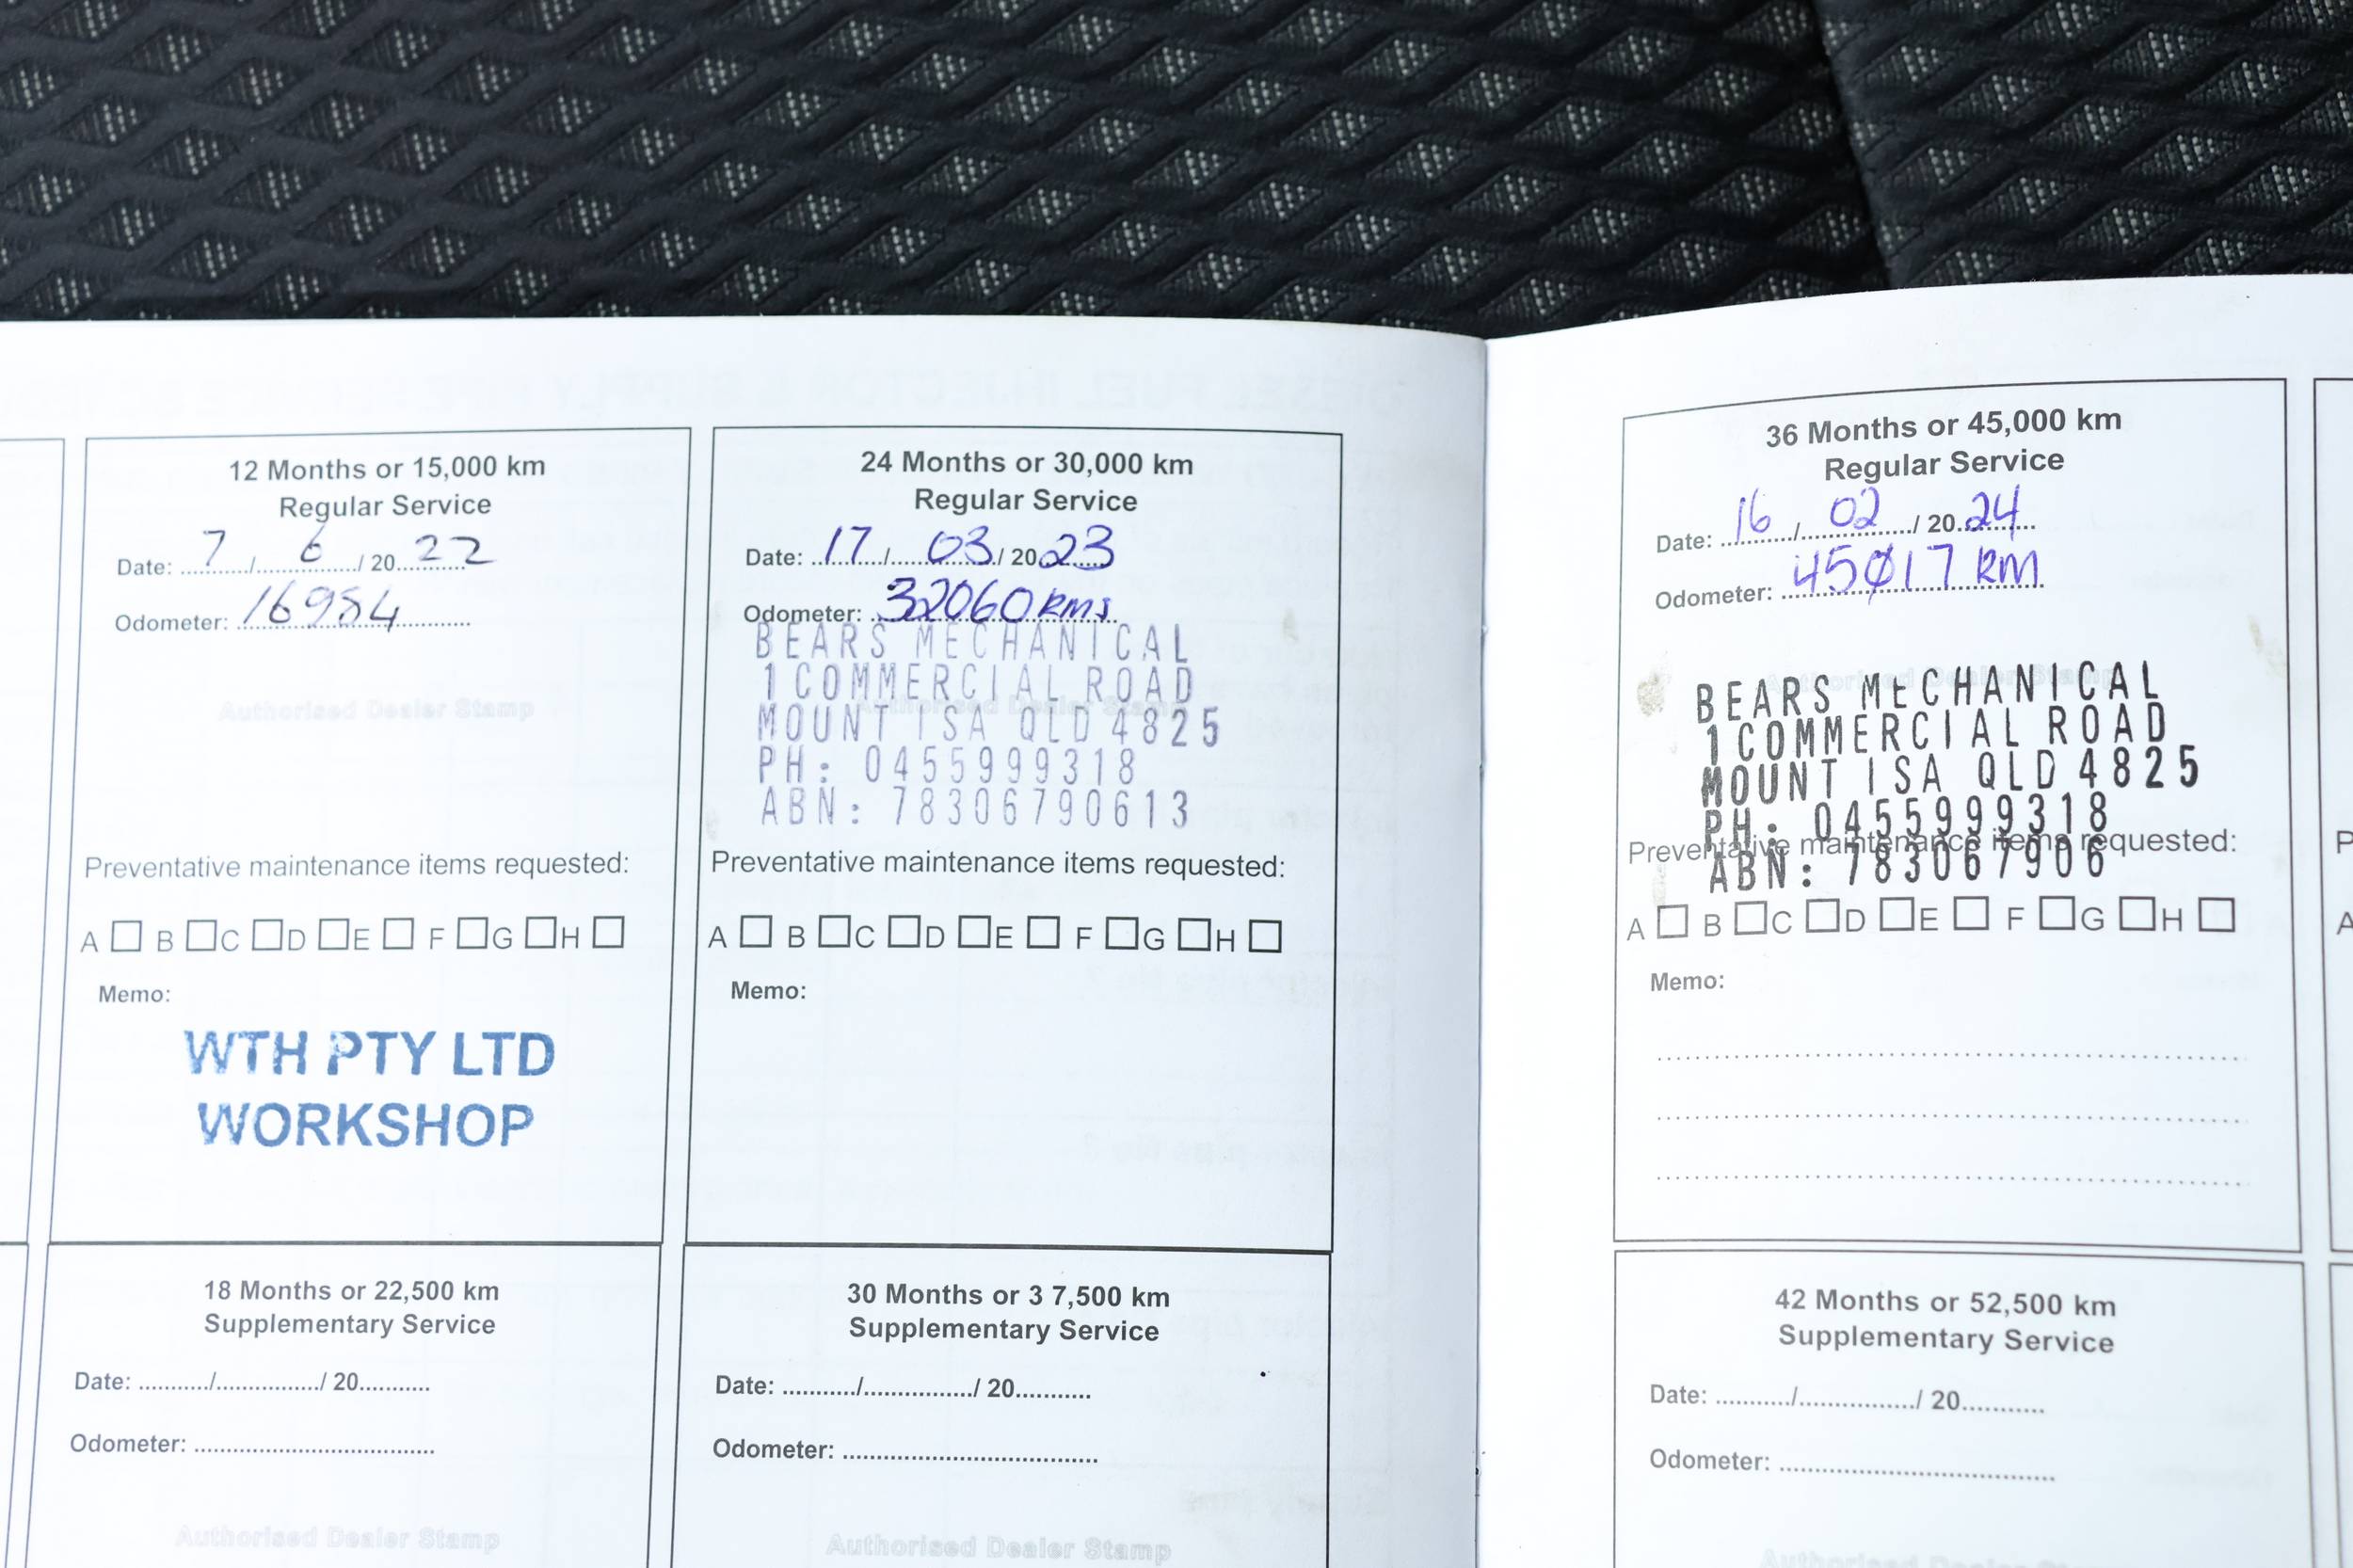 12 Months or 15,000 km
Regular Service
Date: 7 / 6 / 20 22
Odometer: 16984
Authorised Dealer Stamp
Preventative maintenance items requested:
A B C D E F G H
Memo:
WTH PTY LTD
WORKSHOP
18 Months or 22,500 km
Supplementary Service
Date: .........../................/ 20...........
Odometer: ......................................
Authorised Dealer Stamp
24 Months or 30,000 km
Regular Service
Date: 17 / 03 / 20 23
Odometer: 32060 kms
Authorised Dealer Stamp
BEARS MECHANICAL
1 COMMERCIAL ROAD
MOUNT ISA QLD 4825
PH: 0455999318
ABN: 78306790613
Preventative maintenance items requested:
A B C D E F G H
Memo:
30 Months or 3 7,500 km
Supplementary Service
Date: .........../................/ 20...........
Odometer: ......................................
Authorised Dealer Stamp
36 Months or 45,000 km
Regular Service
Date: 16 / 02 / 20 24
Odometer: 45017 km
Authorised Dealer Stamp
BEARS MECHANICAL
1 COMMERCIAL ROAD
MOUNT ISA QLD 4825
PH: 0455999318
Preventative maintenance items requested:
ABN: 783067906
A B C D E F G H
Memo:
42 Months or 52,500 km
Supplementary Service
Date: .........../................/ 20...........
Odometer: ......................................
Authorised Dealer Stamp
P
A